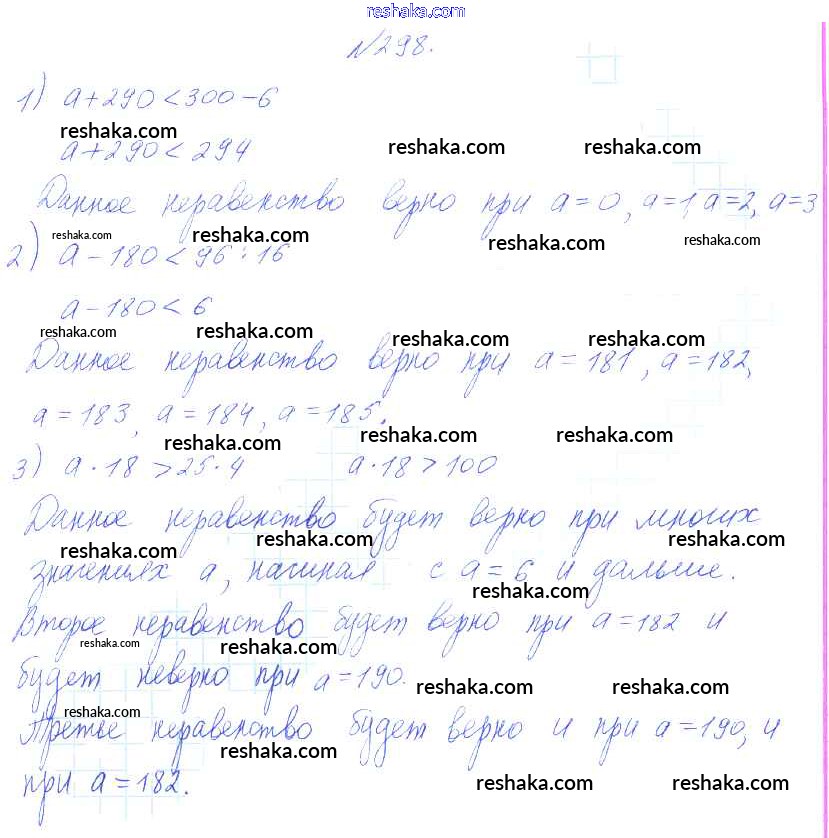 reshaka.com
№298.
1) a+290<300-6
reshaka.com
a+290<294 reshaka.com reshaka.com
Данное неравенство верно при a=0, a=1, a=2, a=3
reshaka.com reshaka.com reshaka.com reshaka.com
2) a-180<96:16
a-180<6
reshaka.com reshaka.com reshaka.com reshaka.com
Данное неравенство верно при a=181, a=182,
a=183, a=184, a=185.
reshaka.com reshaka.com reshaka.com
3) a·18>25·4 a·18>100
Данное неравенство будет верно при многих
reshaka.com reshaka.com reshaka.com reshaka.com
значениях a, начиная с a=6 и дальше.
reshaka.com
Второе неравенство будет верно при a=182 и
reshaka.com reshaka.com reshaka.com reshaka.com
будет неверно при a=190.
reshaka.com reshaka.com
reshaka.com
Третье неравенство будет верно и при a=190, и
reshaka.com reshaka.com reshaka.com
при a=182.
reshaka.com reshaka.com